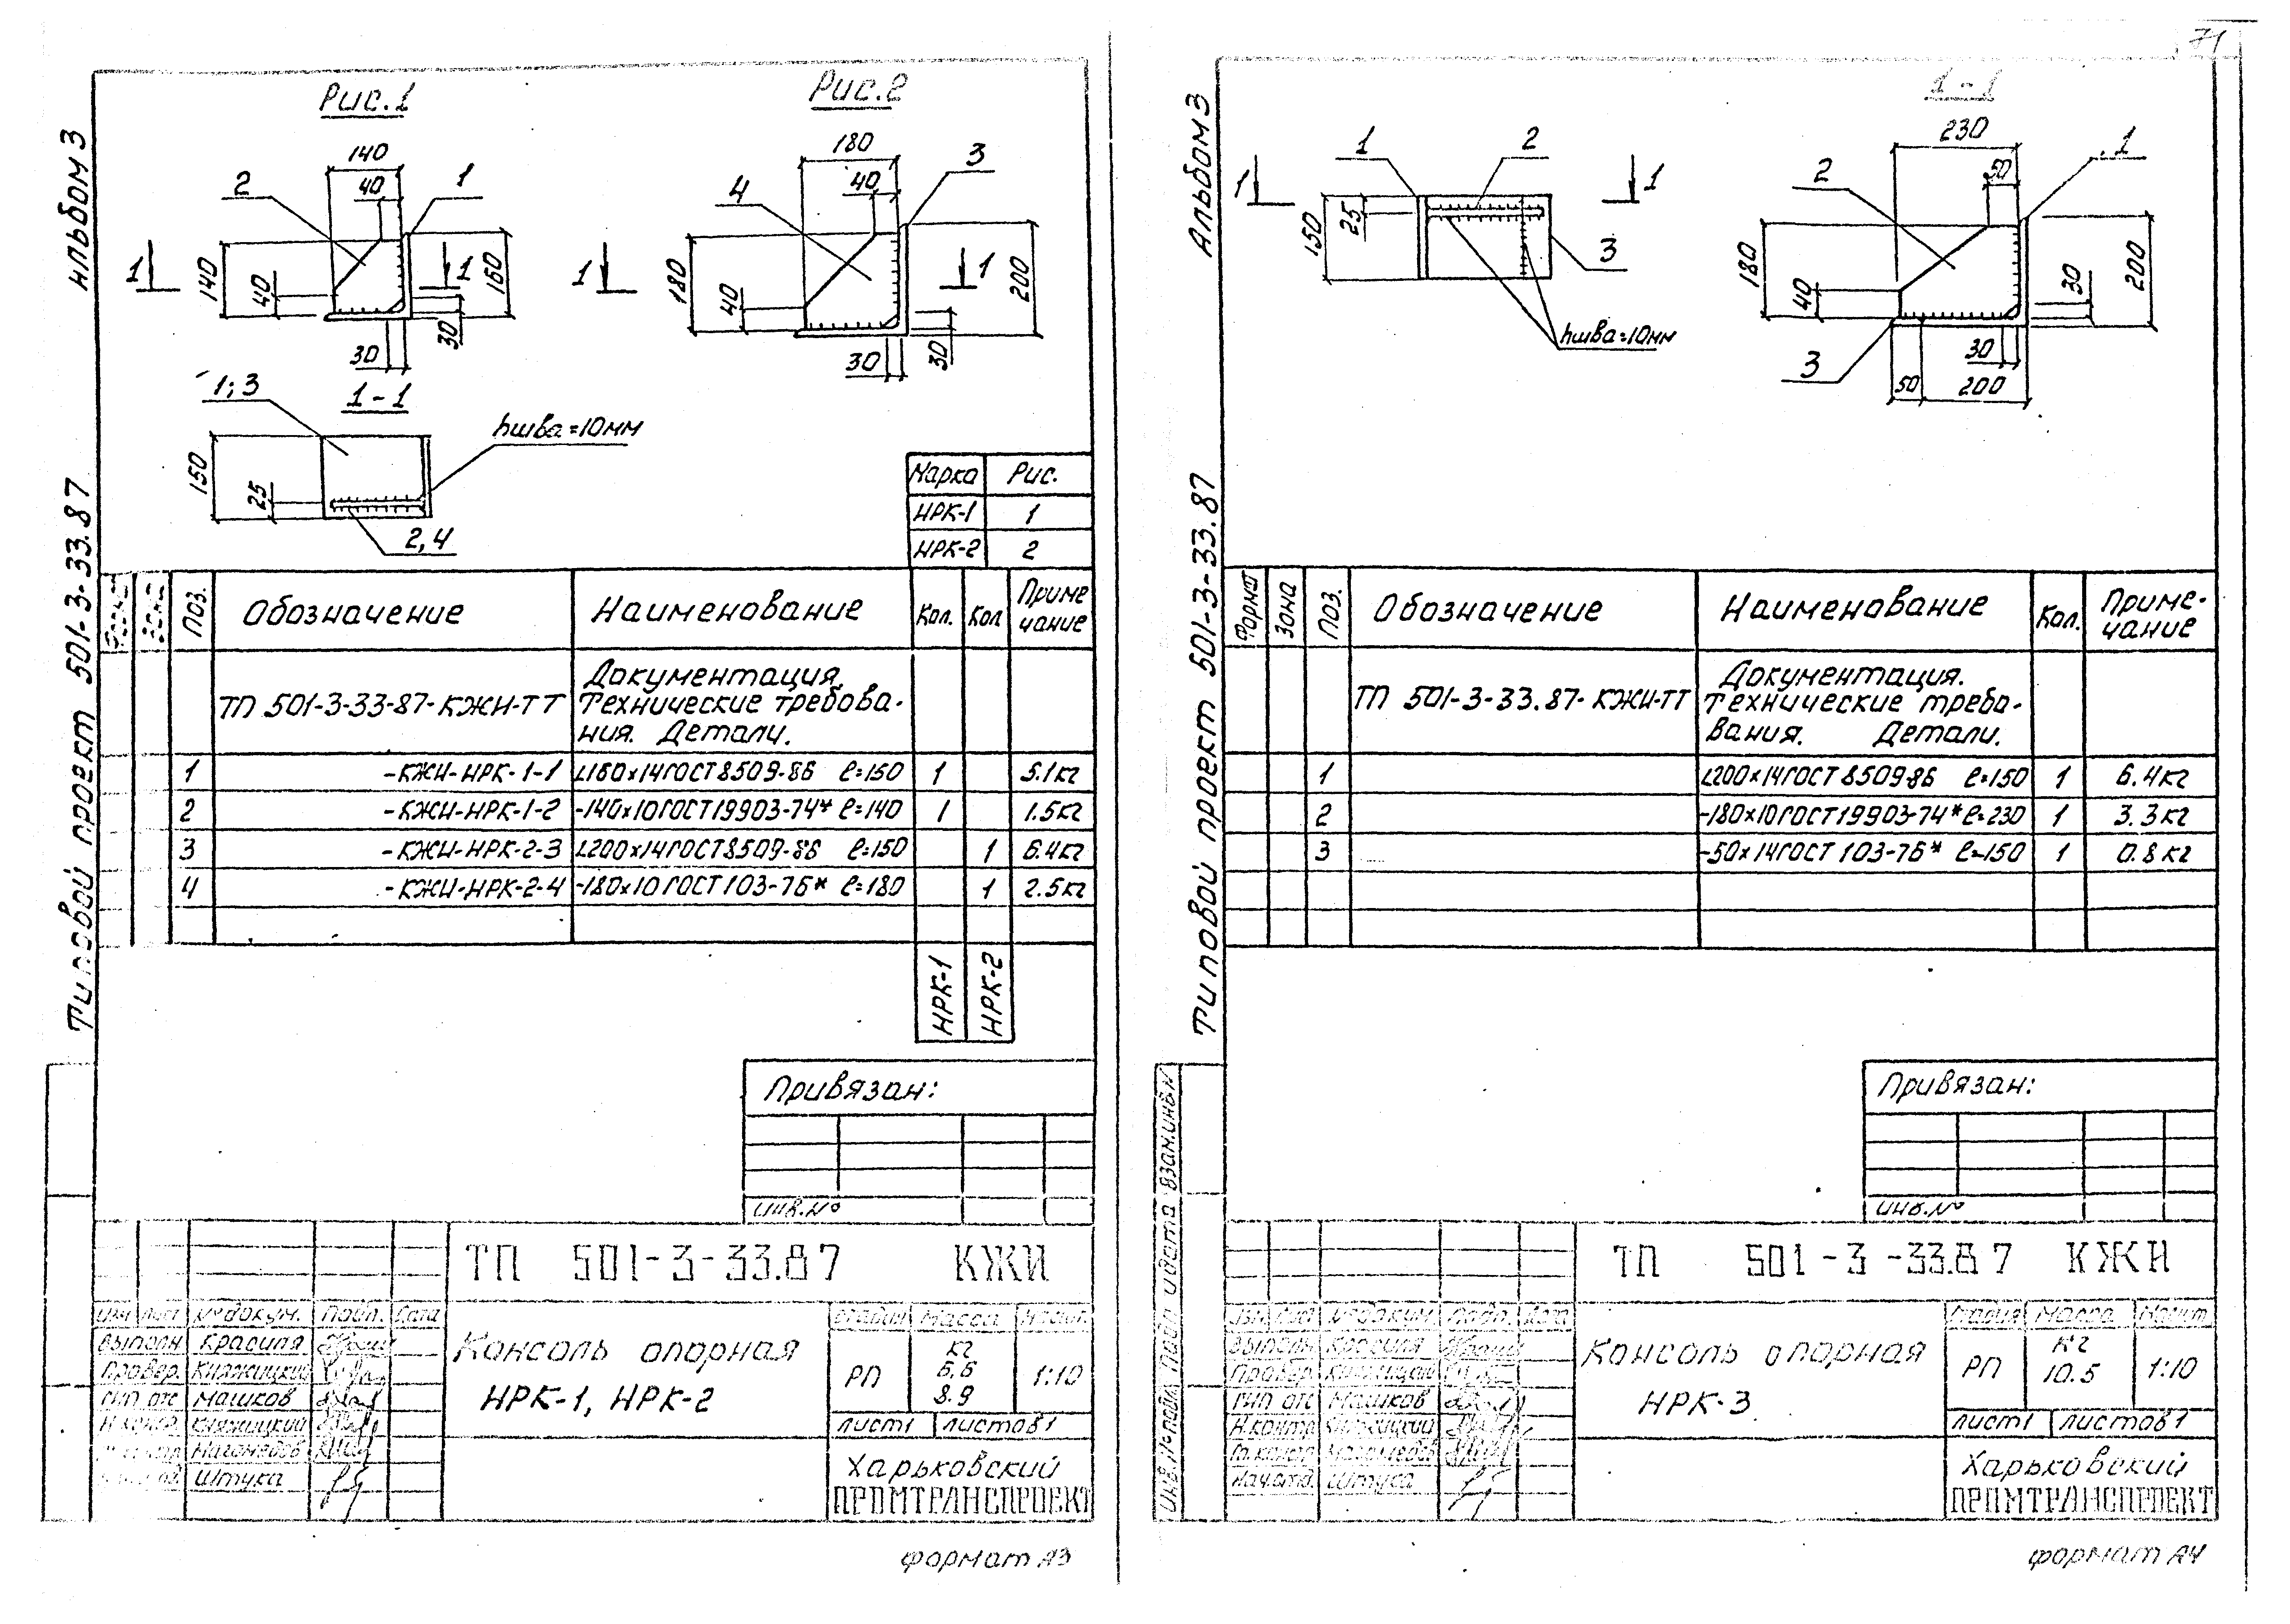 71
Альбом 3
Типовой проект 501-3-33.87
Рис.1
140
40
2
1
140
40
1
1
160
30
30
Рис.2
180
40
4
3
180
40
1
1
200
30
30
1;3
1-1
hшва=10мм
150
25
2,4
Марка Рис.
НРК-1 1
НРК-2 2
Поз. Обозначение Наименование Кол. Кол Приме
чание
Документация.
ТП 501-3-33-87-КЖИ-ТТ Технические требова-
ния. Детали.
1 -КЖИ-НРК-1-1 L160х14ГОСТ8509-86 ℓ=150 1 5.1кг
2 -КЖИ-НРК-1-2 -140х10ГОСТ19903-74* ℓ=140 1 1.5кг
3 -КЖИ-НРК-2-3 L200х14ГОСТ8509-86 ℓ=150 1 6.4кг
4 -КЖИ-НРК-2-4 -180х10ГОСТ103-76* ℓ=180 1 2.5кг
НРК-1 НРК-2
Привязан:
Инв.№
ТП 501-3-33.87 КЖИ
Изм Лист №докум. Подп. Дата
Выполн Красиля
Провер. Княжицкий
ГИП отс Машков
Н.контр. Княжицкий
Штука
Консоль опорная
НРК-1, НРК-2
Стадия Масса Масшт.
РП кг
6,6
8.9 1:10
Лист1 Листов1
Харьковский
ПРОМТРАНСПРОЕКТ
Формат А3
Альбом 3
Типовой проект 501-3-33.87
1 2
1 1
150
25
3
hшва=10мм
1-1
230
50
1
2
180
40
30
200
3
30
50 200
Формат Зона Поз. Обозначение Наименование Кол. Приме-
чание
Документация.
ТП 501-3-33.87-КЖИ-ТТ Технические требо-
вания. Детали.
1 L200х14ГОСТ8509-86 ℓ=150 1 6.4кг
2 -180х10ГОСТ19903-74* ℓ=230 1 3.3кг
3 -50х14ГОСТ 103-76* ℓ=150 1 0.8кг
Привязан:
Инв.№
Инв.№подл. Подп. и дата Взам.инв.№
ТП 501-3-33.87 КЖИ
Изм. Лист №докум. Подп. Дата
Выполн Красиля
Провер. Княжицкий
ГИП отс Машков
Н.контр. Княжицкий
Гл.констр
Нач.отд. Штука
Консоль опорная
НРК-3
Стадия Масса Масшт.
РП кг
10.5 1:10
Лист1 Листов1
Харьковский
ПРОМТРАНСПРОЕКТ
Формат А4